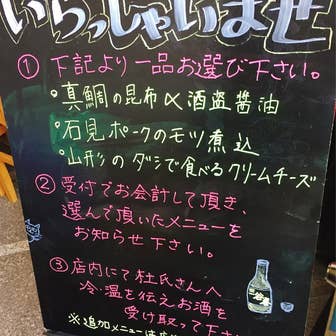 いらっしゃいませ
① 下記より一品お選び下さい。
・真鯛の昆布〆酒盗醤油
・石見ポークのモツ煮込
・山形のダシで食べるクリームチーズ
② 受付でお会計して頂き、
選んで頂いたメニューを
お知らせ下さい。
③ 店内にて杜氏さんへ
冷・温を伝えお酒を
受け取って下
※追加メニュー